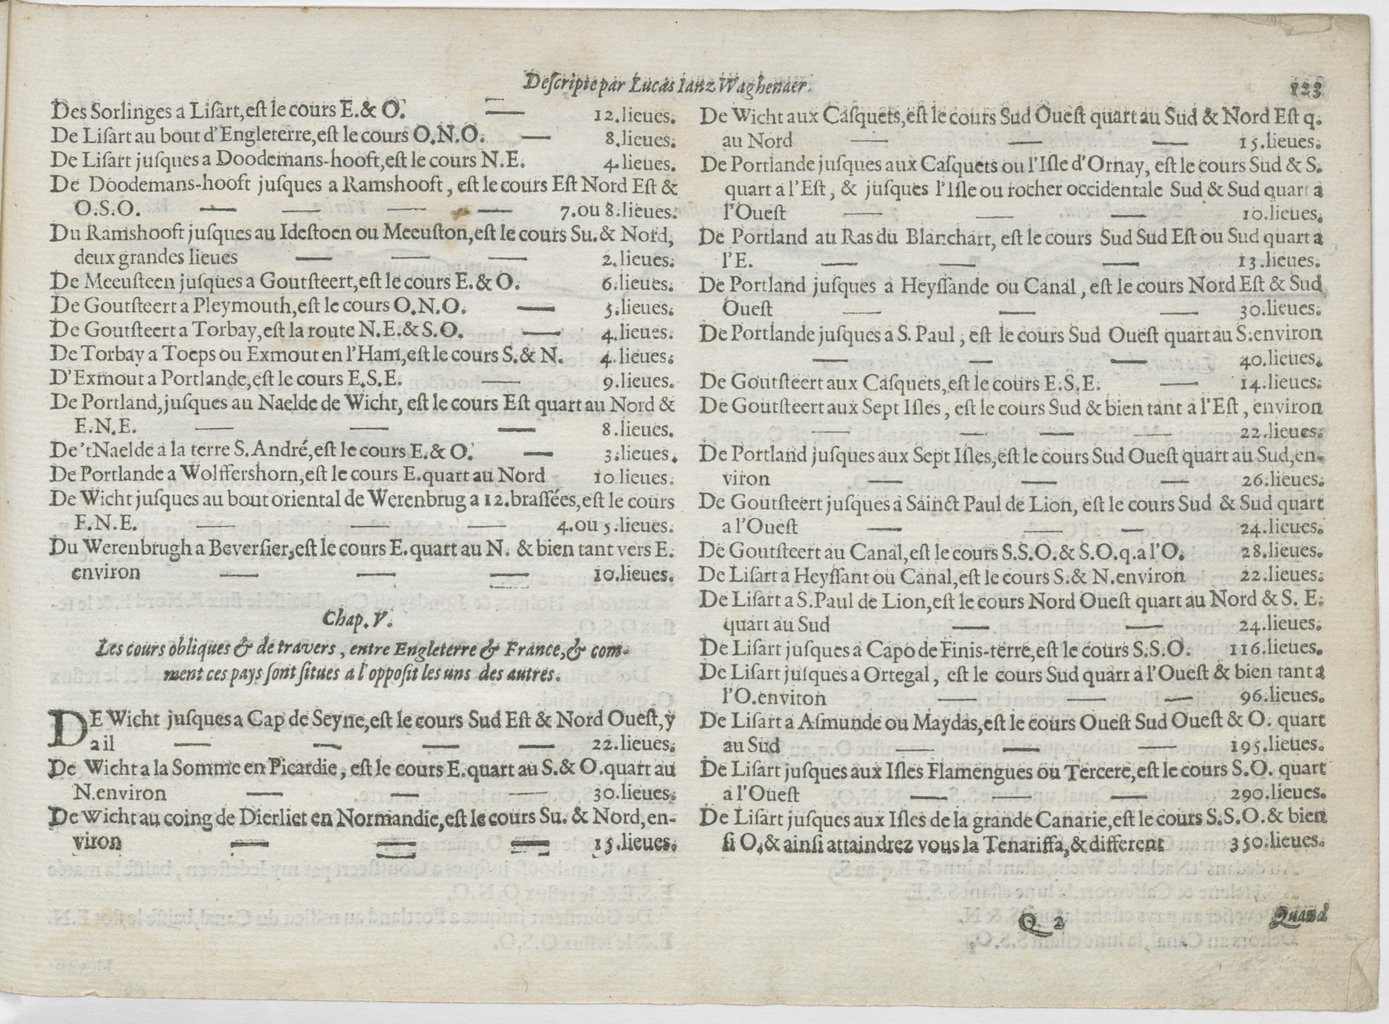 Descripte par Lucas Ianz Waghenaer. 123
Des Sorlinges a Lisart, est le cours E. & O. — 12. lieues.
De Lisart au bout d'Engleterre, est le cours O.N.O. — 8. lieues.
De Lisart jusques a Doodemans-hooft, est le cours N.E. 4. lieues.
De Doodemans-hooft jusques a Ramshooft, est le cours Est Nord Est &
O.S.O. — — — — 7. ou 8. lieues.
Du Ramshooft jusques au Idestoen ou Meeuston, est le cours Su. & Nord,
deux grandes lieues — — — 2. lieues.
De Meeusteen jusques a Goutsteert, est le cours E. & O. 6. lieues.
De Goutsteert a Pleymouth, est le cours O.N.O. — 5. lieues.
De Goutsteert a Torbay, est la route N.E. & S.O. — 4. lieues.
De Torbay a Toeps ou Exmout en l'Ham, est le cours S. & N. 4. lieues.
D'Exmout a Portlande, est le cours E.S.E. — 9. lieues.
De Portland, jusques au Naelde de Wicht, est le cours Est quart au Nord &
E.N.E. — — — 8. lieues.
De 't Naelde a la terre S. André, est le cours E. & O. — 3. lieues.
De Portlande a Wolffershorn, est le cours E. quart au Nord 10. lieues.
De Wicht jusques au bout oriental de Werenbrug a 12. brassées, est le cours
E.N.E. — — — 4. ou 5. lieues.
Du Werenbrugh a Beversier, est le cours E. quart au N. & bien tant vers E.
environ — — — 10. lieues.
Chap. V.
Les cours obliques & de travers, entre Engleterre & France, & com-
ment ces pays sont situes a l'opposit les uns des autres.
DE Wicht jusques a Cap de Seyne, est le cours Sud Est & Nord Ouest, y
a il — — — — 22. lieues.
De Wicht a la Somme en Picardie, est le cours E. quart au S. & O. quart au
N. environ — — — 30. lieues.
De Wicht au coing de Dierliet en Normandie, est le cours Su. & Nord, en-
viron — — — 15. lieues.
De Wicht aux Casquets, est le cours Sud Ouest quart au Sud & Nord Est q.
au Nord — — — 15. lieues.
De Portlande jusques aux Casquets ou l'Isle d'Ornay, est le cours Sud & S.
quart a l'Est, & jusques l'Isle ou rocher occidentale Sud & Sud quart a
l'Ouest — — — 10. lieues.
De Portland au Ras du Blanchart, est le cours Sud Sud Est ou Sud quart a
l'E. — — — 13. lieues.
De Portland jusques a Heyssande ou Canal, est le cours Nord Est & Sud
Ouest — — — 30. lieues.
De Portlande jusques a S. Paul, est le cours Sud Ouest quart au S: environ
— — — 40. lieues.
De Goutsteert aux Casquets, est le cours E.S.E. — 14. lieues.
De Goutsteert aux Sept Isles, est le cours Sud & bien tant a l'Est, environ
— — — — 22. lieues.
De Portland jusques aux Sept Isles, est le cours Sud Ouest quart au Sud, en-
viron — — — 26. lieues.
De Goutsteert jusques a Sainct Paul de Lion, est le cours Sud & Sud quart
a l'Ouest — — — 24. lieues.
De Goutsteert au Canal, est le cours S.S.O. & S.O. q. a l'O. 28. lieues.
De Lisart a Heyssant ou Canal, est le cours S. & N. environ 22. lieues.
De Lisart a S. Paul de Lion, est le cours Nord Ouest quart au Nord & S. E.
quart au Sud — — 24. lieues.
De Lisart jusques a Capo de Finis-terre, est le cours S.S.O. 116. lieues.
De Lisart jusques a Ortegal, est le cours Sud quart a l'Ouest & bien tant a
l'O. environ — — — 96. lieues.
De Lisart a Asmunde ou Maydas, est le cours Ouest Sud Ouest & O. quart
au Sud — — — 195. lieues.
De Lisart jusques aux Isles Flamengues ou Tercere, est le cours S.O. quart
a l'Ouest — — — 290. lieues.
De Lisart jusques aux Isles de la grande Canarie, est le cours S.S.O. & bien
si O, & ainsi attaindrez vous la Tenariffa, & different 350. lieues.
Q 2 Quand